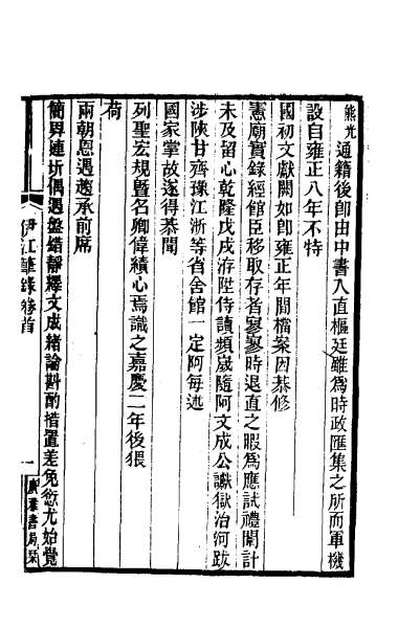 熊光通籍後卽由中書入直樞廷雖爲時政匯集之所而軍機
設自雍正八年不特
國初文獻闕如卽雍正年間檔案因恭修
憲廟實錄經館臣移取存者寥寥時退直之暇爲應試禮闈計
未及留心乾隆戊戌洊陞侍讀頻歲隨阿文成公讞獄治河跋
涉陝甘齊豫江浙等省舍館一定阿每述
國家掌故遂得恭聞
列聖宏規曁名卿偉績心焉識之嘉慶二年後猥
荷
兩朝恩遇遬承前席
簡畀連圻偶遇盤錯靜繹文成緒論斟酌措置差免愆尤始覺
伊江筆錄卷首
一
廣雅書局栞